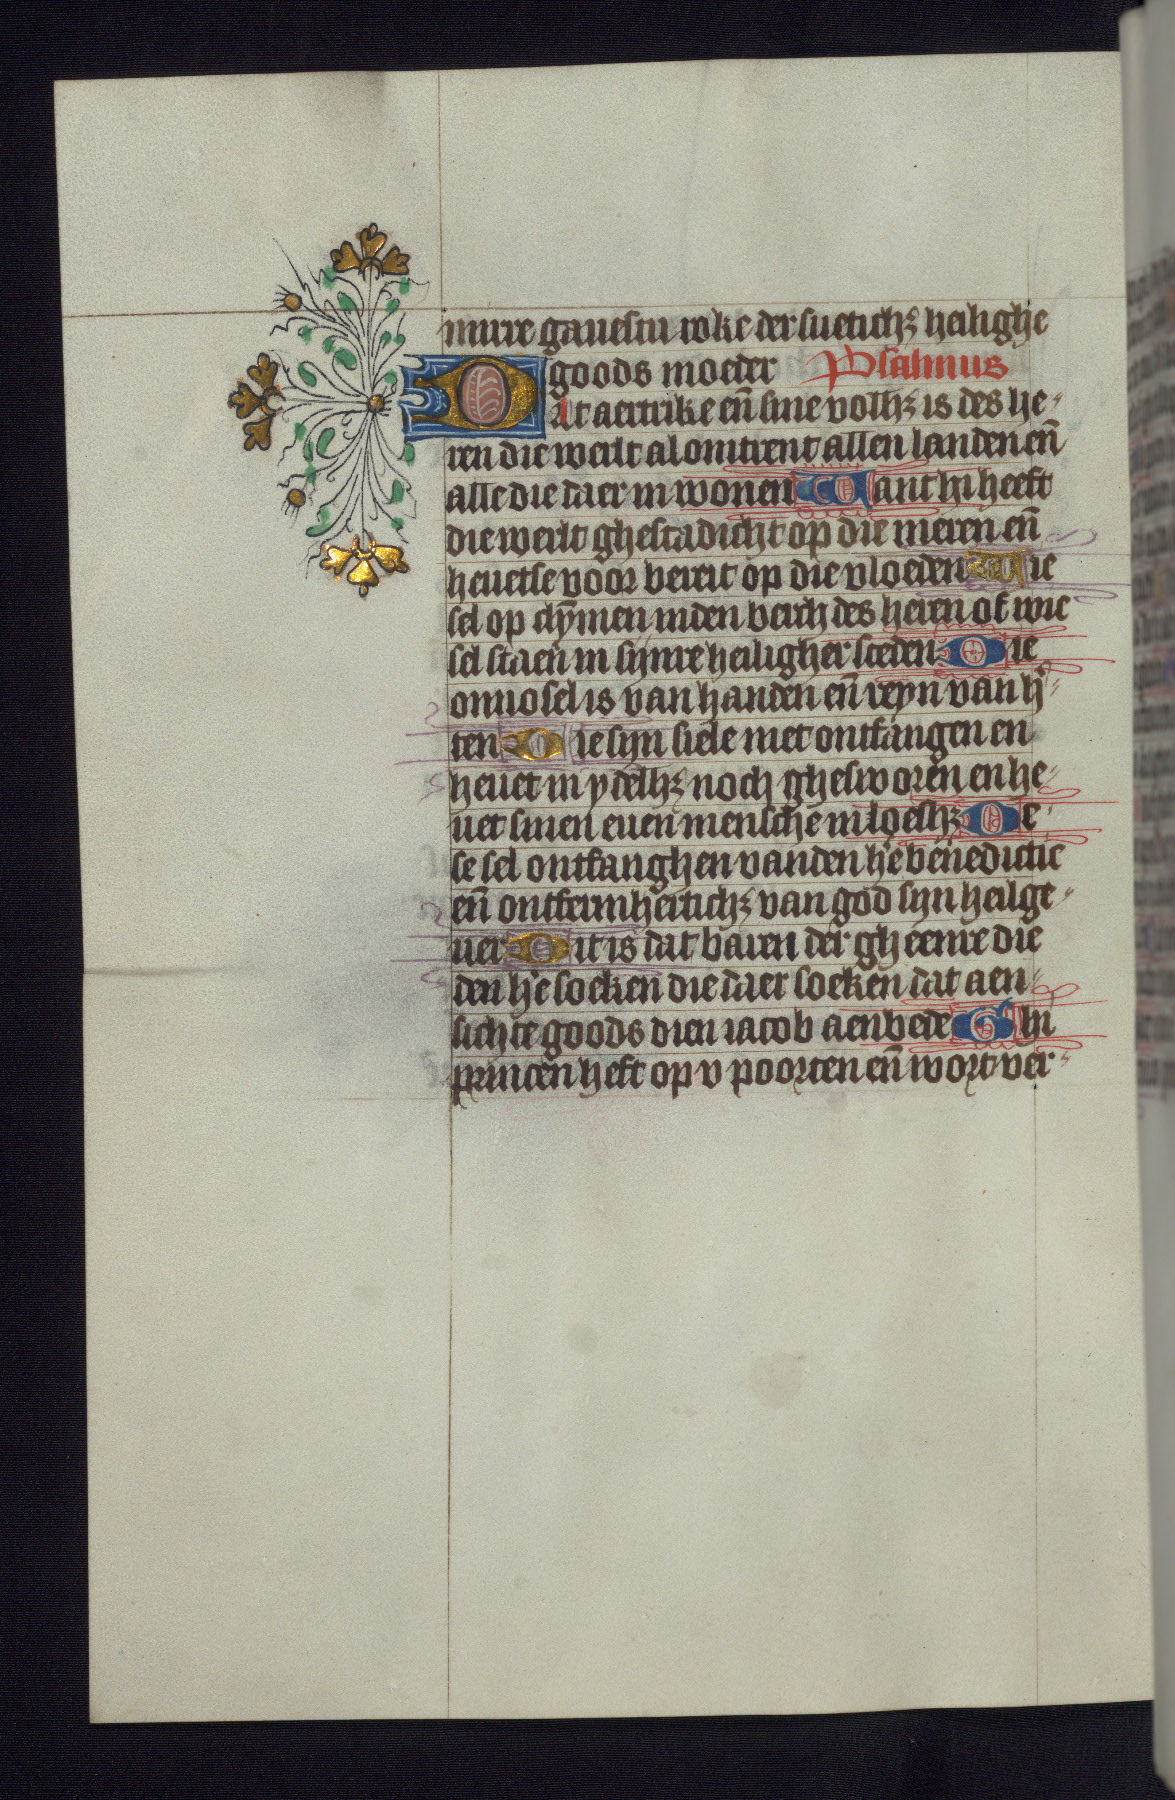 mirre gauestu roke der suetichꝫ heilighe
goods moeder Psalmus
DAt aertrike en̄ sine volhꝫ is des he-
ren die werlt al omtrent allen landen en̄
alle die daer in wonen Want hi heeft
die werlt ghestadicht op die meren en̄
heuetse voor bereit op die vloeden Wie
sel op clȳmen inden berch des heren of wie
sel staen in synre heiligher steden Die
onnosel is van handen en̄ reyn van h̄-
ten Die syn siele niet ontfangen en
heuet in ydelhꝫ noch ghesworen en he-
uet sinen euen mensche in loeshꝫ De-
se sel ontfanghen vanden hē benedictie
en̄ ontfermherticheꝫ van god syn heilge-
uer Dit is dat baren der gheenre die
den hē soeken die daer soeken dat aen-
sichte goods dien iacob aenbede Ghi
princen heft op v poorten en̄ wort ver-